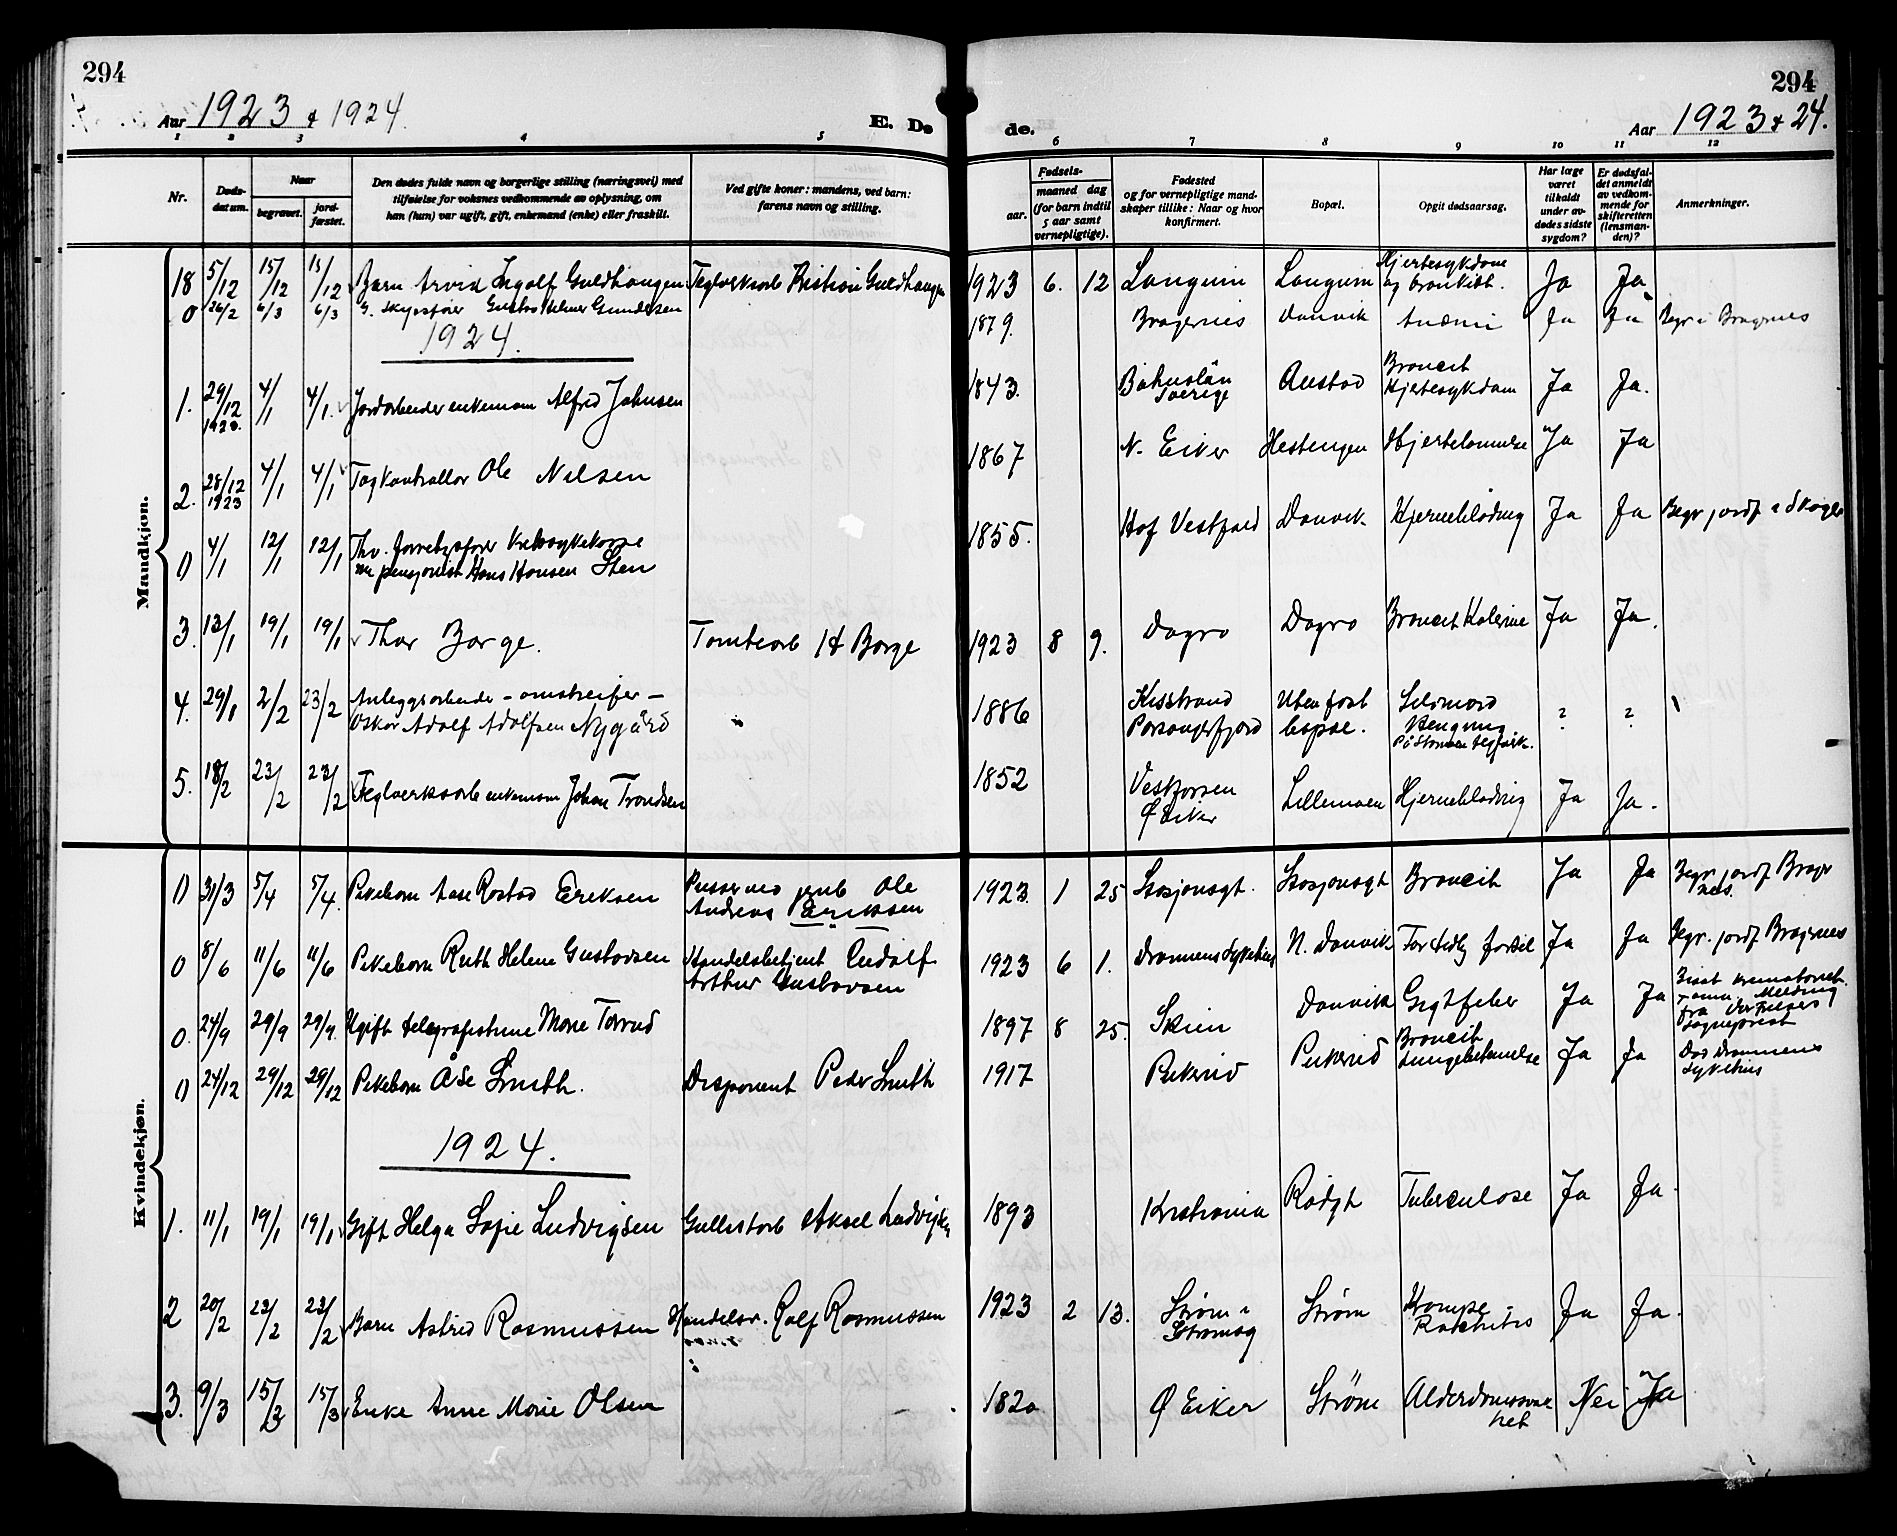 294
294
Aar 1923 & 1924.
E. Dø
de.
Aar 1923 & 24.
1 2 3 4 5 6 7 8 9 10 11 12
Nr.
Døds-
datum.
Naar
begravet.
jord-
fæstet.
Den dødes fulde navn og borgerlige stilling (næringsvei) med
tilføielse for voksnes vedkommende av oplysning, om
han (hun) var ugift, gift, enkemand (enke) eller fraskilt.
Ved gifte koner: mandens, ved barn:
farens navn og stilling.
Fødsels-
aar.
maaned dag
(for barn indtil
5 aar samt
vernepligtige).
Fødested
og for vernepligtige mand-
skaper tillike: Naar og hvor
konfirmert.
Bopæl.
Opgit dødsaarsag.
Har læge
været
tilkaldt
under av-
dødes sidste
sygdom?
Er dødsfal-
det anmeldt
av vedkom-
mende for
skifteretten
(lensman-
den)?
Anmerkninger.
Mandkjøn.
18 5/12 15/12 15/12 Barn Arvid Ingolf Guldhaugen Teglverksarb Kristian Guldhaugen 1923 6. 12 Langum Langum Hjertesykdom og bronkitt. Ja Ja
0 26/2 6/3 6/3 G. Gustav Helmer Gundersen 1879. Bragernes Danvik Anæmi Ja Ja Begr i Bragernes
1924.
1. 29/12 1923. 4/1 4/1. Jordarbeider enkemann Alfred Johnsen 1843. Bohuslän Sverige Austad Broncit Hjertesykdom Ja Ja.
2. 28/12 1923 4/1 4/1 Togkontrollør Ole Nilsen 1867 N. Eiker Hestengen Hjertelammelse Ja Ja
0 4/1 12/1 12/1 Thv. pensjonist Hans Hansen Sten 1855. Hof Vestfold Danvik Hjerneblødning Ja Ja Begr jordf i Skoger
3. 13/1 19/1 19/1 Thor Borge. Tomtearb H Borge 1923 8 9. Døgro Døgro Broncit Kolerine Ja Ja.
4. 29/1 2/2 23/2 Anleggsarbeider - omstreifer - Oskar Adolf Adolfsen Nygård 1886 Kistrand Porsangerfjord Uten fast bopæl. Selvmord Hengning På Strømmen teglverk. ? ?
5. 18/2 23/2 23/2 Teglverksarb enkemann Johan Trondsen 1852 Vestfossen Ø Eiker Lillemoen Hjerneblødning Ja Ja.
Kvindekjøn.
0 31/3 5/4 5/4. Pikebarn Aase Rostad Eriksen Ole Andreas Eriksen 1923. 1 25 Stasjonsgt. Stasjonsgt Broncit Ja Ja Begr. jordf Brager nes.
0 8/6 11/6 11/6 Pikebarn Ruth Helene Gustavsen Handelsbetjent Rudolf Arthur Gustavsen 1923 6 1. Drammens Sykehus N. Danvik For tidlig fødsel Ja Ja Begr. jordf Bragernes
0. 24/9 29/9 29/9. Ugift telegrafistinne Marie Torrud 1897 8 25. Skien Danvik Gigtfeber Ja Ja Bisat krematoriet Melding fra Vår Frelsers sogneprest
0 24/12 29/12 29/12 Pikebarn Åse Smith. Disponent Peder Smith 1917 Pukerud Pukerud Broncit Lungebetennelse Ja Ja Død Drammens sykehus
1924.
1. 11/1 19/1 19/1 Gift Helga Sofie Ludvigsen Gullistarb Aksel Ludvigsen 1893 Kristiania Rødgt Tuberculose Ja Ja.
2 20/2 23/2 23/2 Barn Astrid Rasmussen Handelsr. Rolf Rasmussen 1923 2 13. Strøm i Strømsg Strøm Krampe Rakhitis Ja Ja.
3. 9/3 15/3 15/3 Enke Anne Marie Olsen 1820 Ø Eiker Strøm Alderdomssvakhet Nei Ja